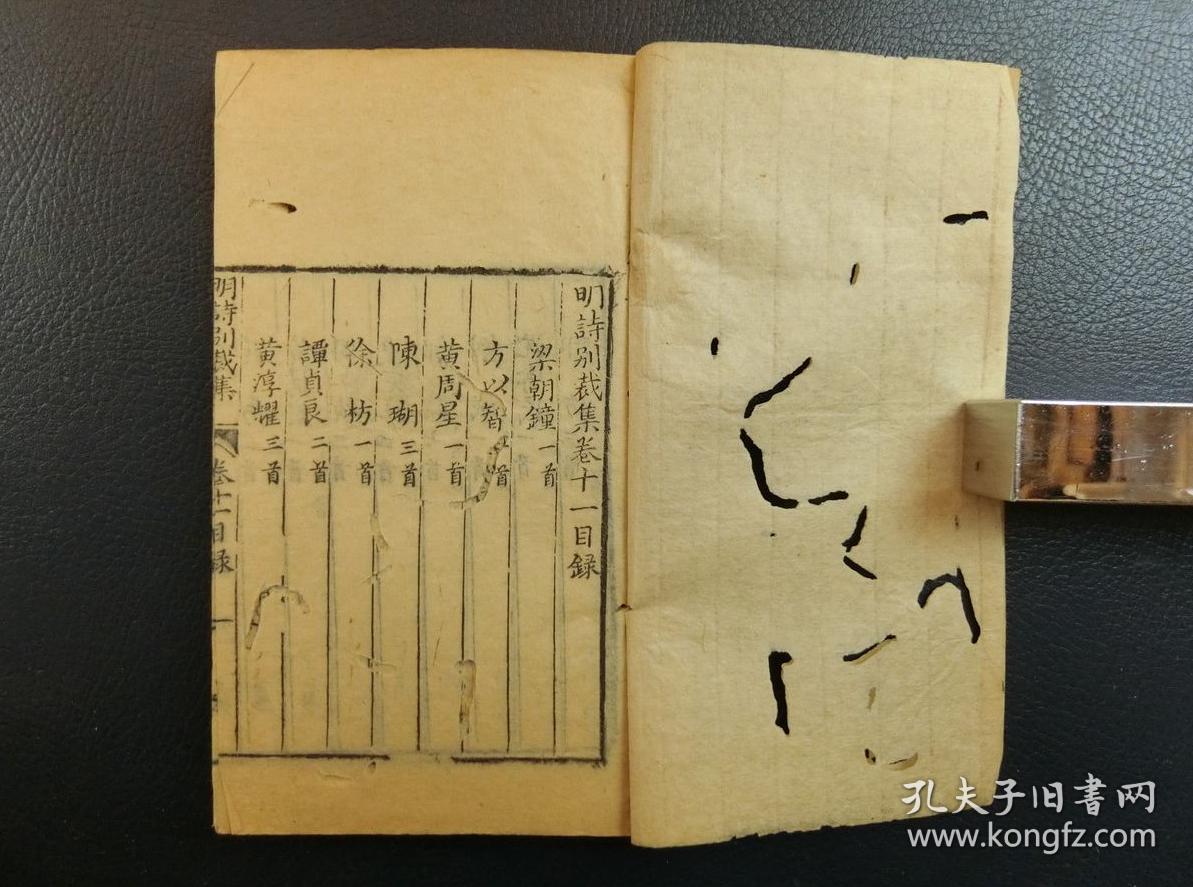 明詩别裁集卷十一目録
梁朝鐘 一首
方以智 首
黄周星 一首
陳瑚 三首
徐枋 一首
譚貞良 二首
黄淳耀 三首
明詩别裁集 卷十一目録 一
孔夫子旧書网
www.kongfz.com